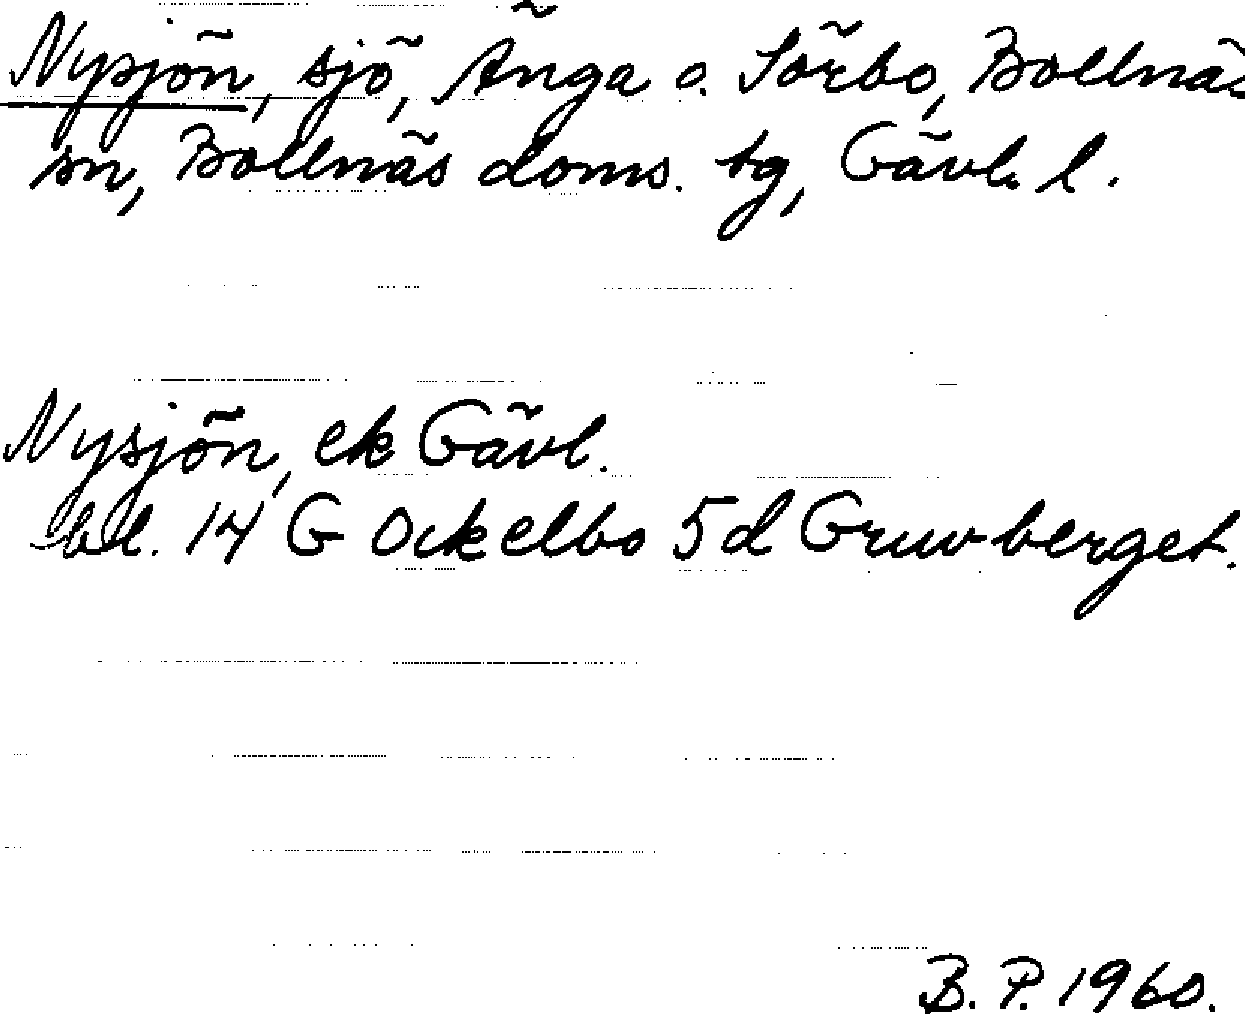 Nysjön, sjö, Änga o. Sörbo, Bollnäs
sn, Bollnäs doms. tg, Gävl. l.
Nysjön, ek Gävl.
bl. 14 G Ockelbo 5d Gruvberget.
B. P. 1960.